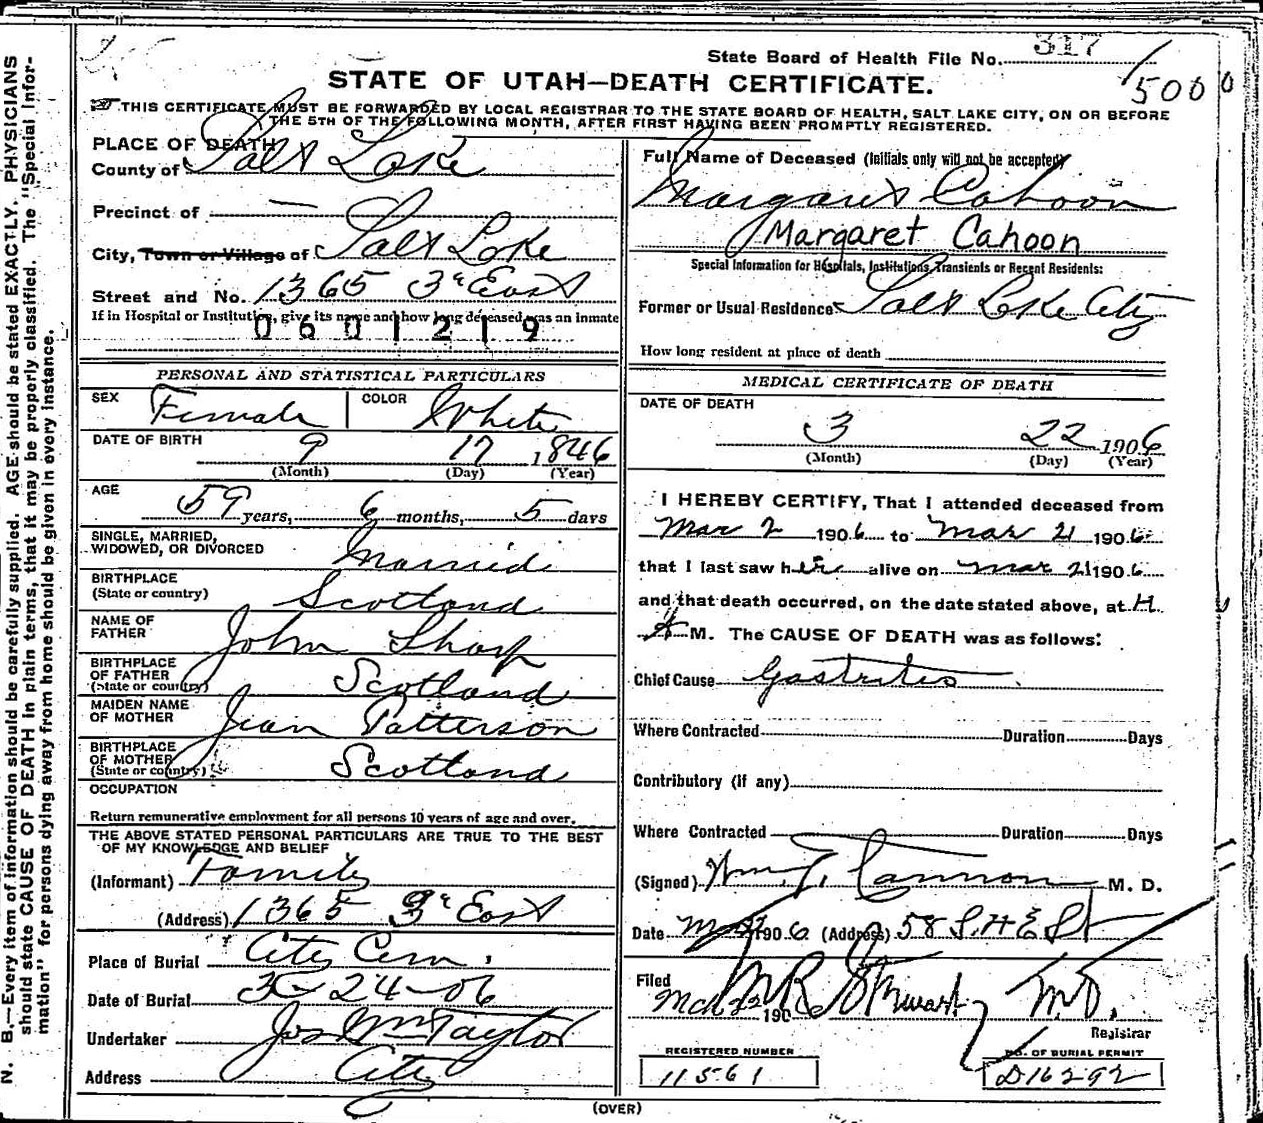 State Board of Health File No. 317
15000
STATE OF UTAH—DEATH CERTIFICATE.
THIS CERTIFICATE MUST BE FORWARDED BY LOCAL REGISTRAR TO THE STATE BOARD OF HEALTH, SALT LAKE CITY, ON OR BEFORE
THE 5TH OF THE FOLLOWING MONTH, AFTER FIRST HAVING BEEN PROMPTLY REGISTERED.
N. B.—Every item of information should be carefully supplied. AGE should be stated EXACTLY. PHYSICIANS
should state CAUSE OF DEATH in plain terms, that it may be properly classified. The "Special Infor-
mation" for persons dying away from home should be given in every instance.
PLACE OF DEATH
County of Salt Lake
Precinct of —
City, Town or Village of Salt Lake
Street and No. 1365 3d East
If in Hospital or Institution, give its name and how long deceased was an inmate
0601219
PERSONAL AND STATISTICAL PARTICULARS
SEX Female COLOR White
DATE OF BIRTH 9 17 1846
(Month) (Day) (Year)
AGE
59 years, 6 months, 5 days
SINGLE, MARRIED,
WIDOWED, OR DIVORCED Married
BIRTHPLACE
(State or country) Scotland
NAME OF
FATHER John Sharp
BIRTHPLACE
OF FATHER
(State or country) Scotland
MAIDEN NAME
OF MOTHER Jean Patterson
BIRTHPLACE
OF MOTHER
(State or country) Scotland
OCCUPATION
Return remunerative employment for all persons 10 years of age and over.
THE ABOVE STATED PERSONAL PARTICULARS ARE TRUE TO THE BEST
OF MY KNOWLEDGE AND BELIEF
(Informant) Family
(Address) 1365 3d East
Place of Burial City Cem.
Date of Burial 3-24-06
Undertaker Jos Wm Taylor
Address City
Full Name of Deceased (Initials only will not be accepted)
Margaret Cahoon
Margaret Cahoon
Special Information for Hospitals, Institutions, Transients or Recent Residents:
Former or Usual Residence Salt Lake City
How long resident at place of death
MEDICAL CERTIFICATE OF DEATH
DATE OF DEATH
3 22 1906
(Month) (Day) (Year)
I HEREBY CERTIFY, That I attended deceased from
Mar 2 1906 to Mar 21 1906
that I last saw her alive on Mar 21 1906
and that death occurred, on the date stated above, at
A M. The CAUSE OF DEATH was as follows:
Chief Cause Gastritis
Where Contracted Duration Days
Contributory (if any)
Where Contracted Duration Days
(Signed) Wm. T. Cannon M. D.
Date 1906 (Address) 58 S. St
Filed
Mch 22 190 Stewart M.D.
Registrar
REGISTERED NUMBER
11561
NO. OF BURIAL PERMIT
D16292
(OVER)